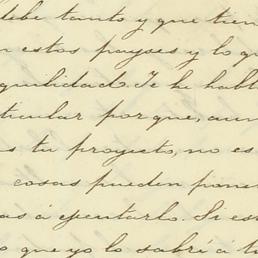 debe tanto y que tien
n estos payses y lo qu
quilidad. Te he habl
ticular porque, aun
s tu proyecto, no es
cosas pueden pone
as á ejecutarlo. Si es
o que yo lo sabrí á t